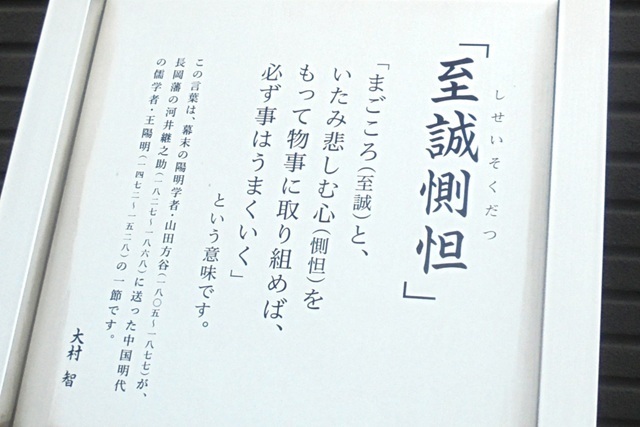 「至誠惻怛」
しせいそくだつ
「まごころ(至誠)と、
いたみ悲しむ心(惻怛)を
もって物事に取り組めば、
必ず事はうまくいく」
という意味です。
この言葉は、幕末の陽明学者・山田方谷(一八〇五~一八七七)が、
長岡藩の河井継之助(一八二七~一八六八)に送った中国明代
の儒学者・王陽明(一四七二~一五二八)の一節です。
大村 智